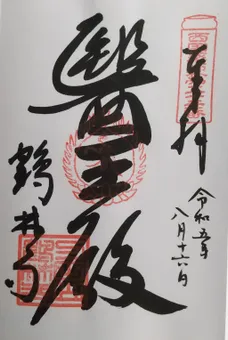 奉拝
令和五年
八月十六日
醫王殿
鶴林寺